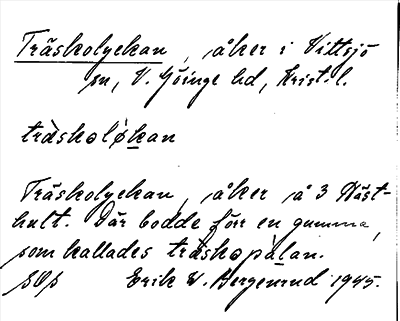 Träskolyckan, åker i Vittsjö
sn, V. Göinge hd, Krist. l.
träskoløkan
Träskolyckan, åker å 3 Häst-
hult. Där bodde förr en gumma,
som kallades träskopålan.
Erik W. Bergenrud 1945.